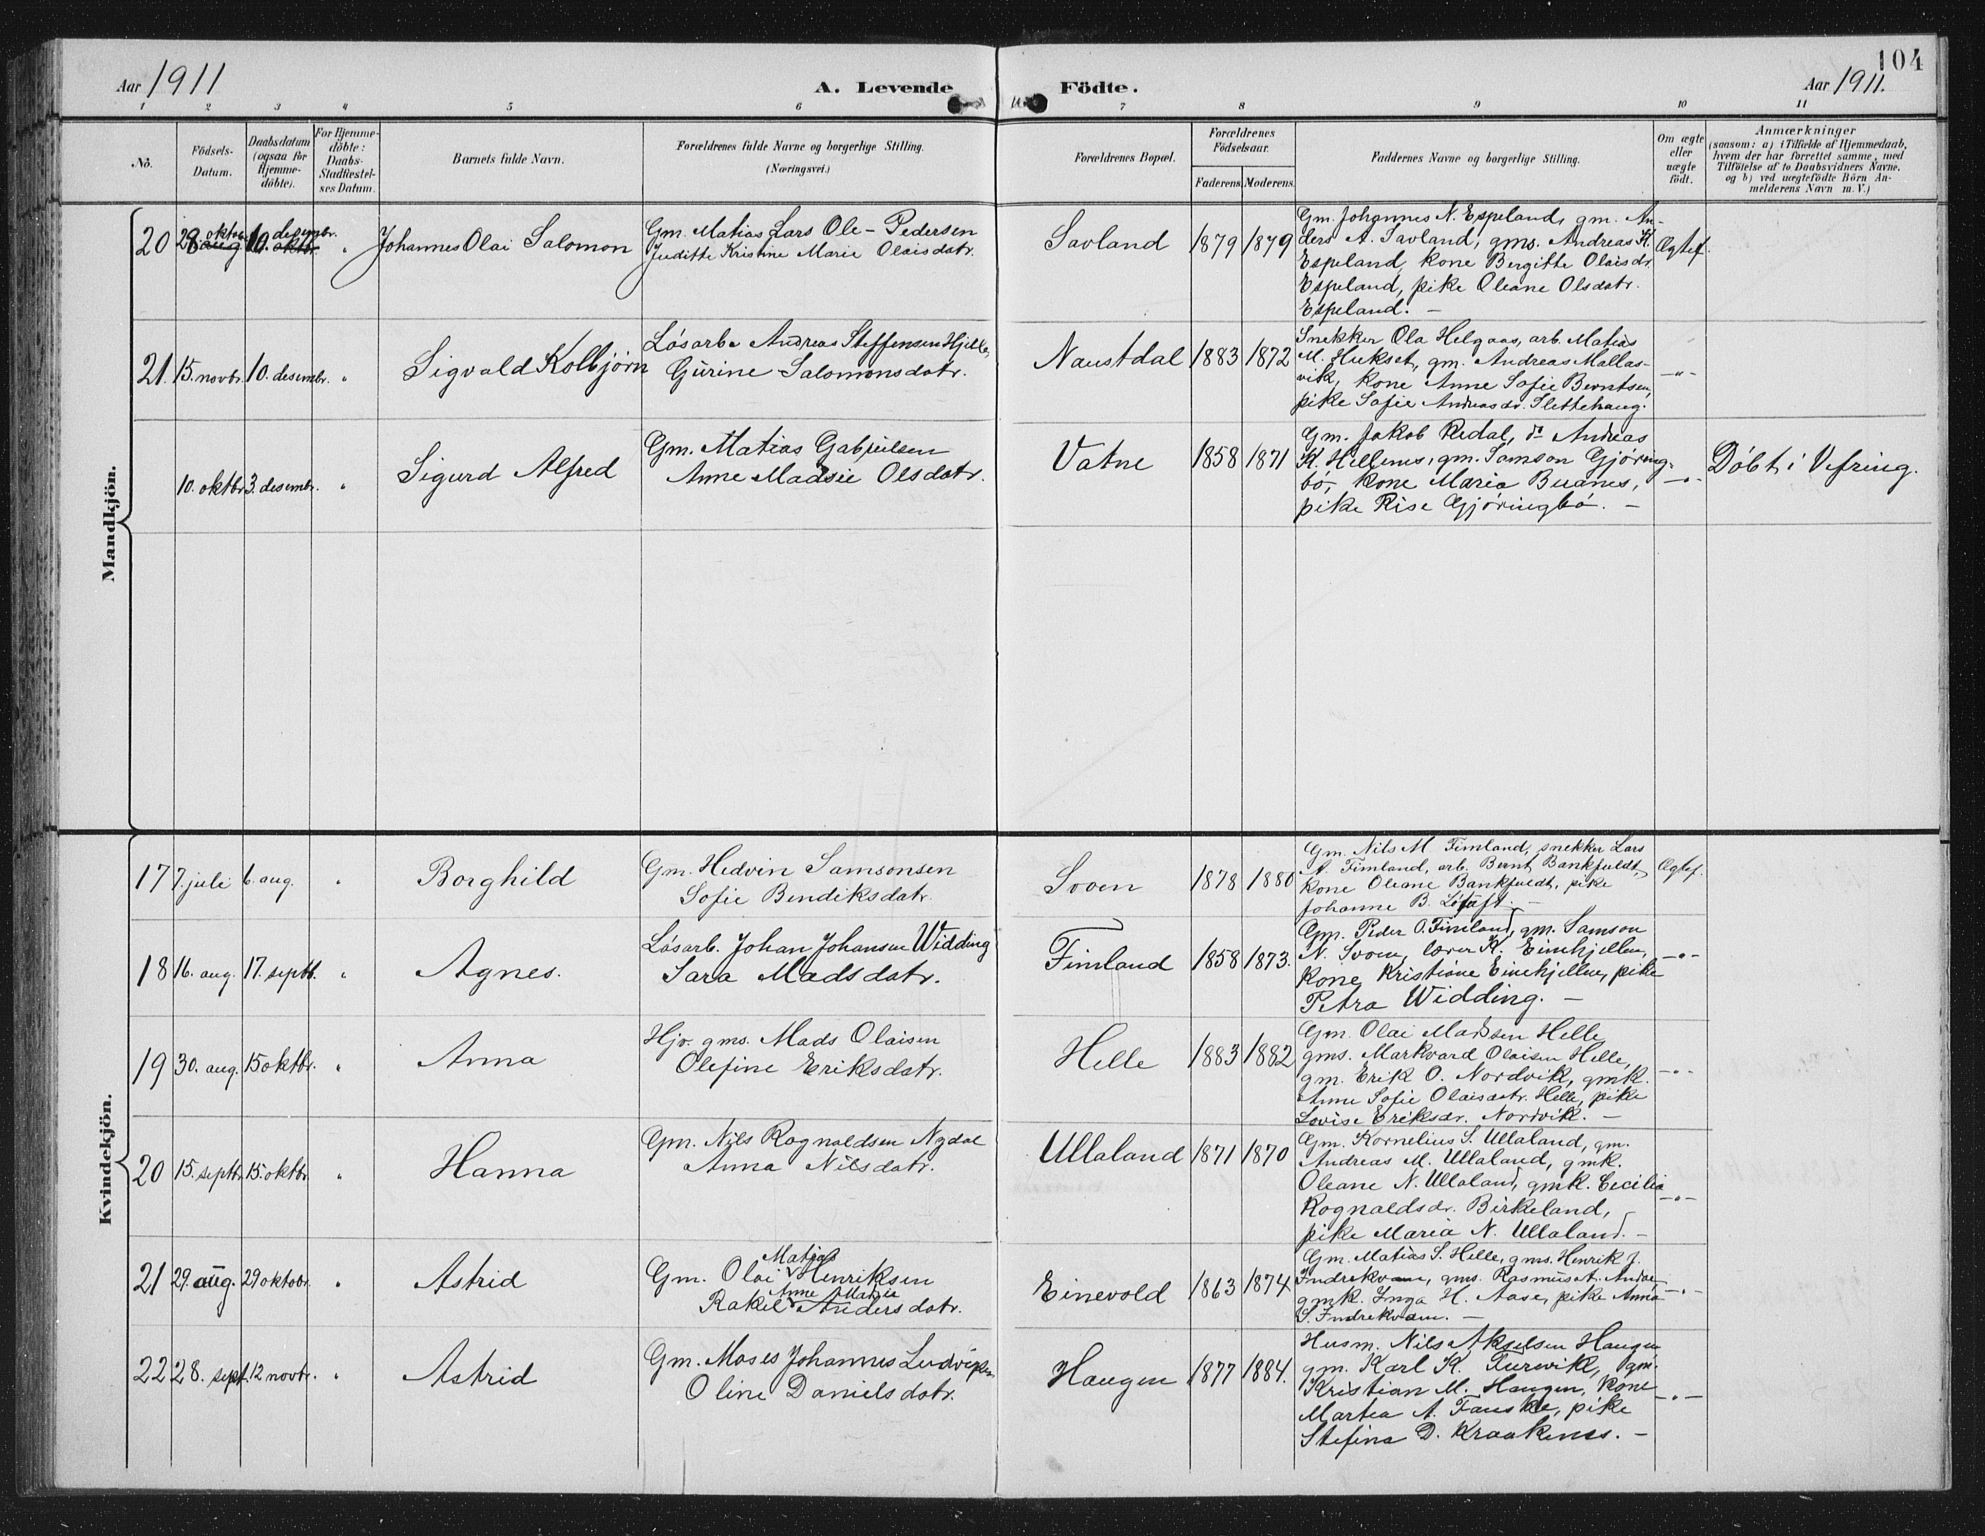 104
Aar 1911
A. Levende
Födte.
Aar 1911.
1 2 3 4 5 6 7 8 9 10 11
Nô.
Födsels-
Datum.
Daabsdatum
(ogsaa for
Hjemme-
döbte).
For Hjemme-
döbte:
Daabs-
Stadfæstel-
ses Datum.
Barnets fulde Navn.
Forældrenes fulde Navne og borgerlige Stilling.
(Næringsvei.)
Forældrenes Bopæl.
Forældrenes
Födselsaar.
Faderens.
Moderens.
Faddernes Navne og borgerlige Stilling.
Om ægte
eller
uægte
födt.
Anmærkninger
(saasom: a) i Tilfælde af Hjemmedaab,
hvem der har forrettet samme, med
Tilföielse af to Daabsvidners Navne,
og b) ved uægtefödte Börn An-
melderens Navn m. V.)
Mandkjön.
20 28 oktbr. aug 10. desembr. oktbr. " Johannes Olai Salomon
Gm. Matias Lars Ole - Pedersen
Juditte Kristine Marie Olaisdatr.
Savland 1879 1879
Gm. Johannes N. Espeland, gm. An-
ders A. Savland, gms. Andreas K.
Espeland, kone Bergitte Olaisdr.
Espeland, pike Oleane Olsdatr.
Espeland. -
Ægtef.
21. 15. novbr. 10. desembr. " Sigvald Kolbjørn
Løsarb. Andreas Steffensen Hjelle,
Gurine Salomonsdatr.
Naustdal 1883 1872
Snekker Ola Helgaas, arb. Matias
M. Hukset, gm. Andreas Mallas-
vik, kone Anne Sofie Berntsen,
pike Sofie Andreasdr. Slettehaug.
-"-
10. oktbr. 3. desembr. " Sigurd Alfred
Gm. Matias Gabrielsen
Anne Madsie Olsdatr.
Vatne 1858 1871
Gm. Jakob Redal, do Andreas
K. Hellenes, gm. Samson Gjøring-
bø, kone Maria Buanes,
pike Rise Gjøringbø. -
-"-
Døbt i Vefring.
Kvindekjön.
17 7. juli 6. aug. " Borghild
Gm. Hedvin Samsonsen
Sofie Bendiksdatr.
Svoen 1878 1880
Gm. Nils M Fimland, snekker Lars
A. Fimland, arb. Bernt Bankfuldt,
kone Oleane Bankfuldt, pike
Johanne B. Løfaft. -
Ægtef.
18 16. aug. 17. septb. " Agnes.
Løsarb. Johan Johansen Widding
Sara Madsdatr.
Fimland 1858 1873.
Gm. Peder O. Fimland, gm. Samson
N. Svoen, lærer K. Eimhjellen,
kone Kristiane Eimhjellen, pike
Petra Widding. -
-"-
19 30. aug. 15 oktbr. " Anna
Hjv. gms. Mads Olaisen
Olefine Eriksdatr.
Helle 1883 1882
Gm. Olai Madsen Helle
gms. Markvard Olaisen Helle,
gm. Erik O. Nordvik, gmk.
Anne Sofie Olaisdatr. Helle, pike
Lovise Eriksdr. Nordvik. -
-"-
20 15. septbr. 15. oktbr. " Hanna
Gm. Nils Rognaldsen Nydal
Anna Nilsdatr.
Ullaland 1871 1870
Gm. Kornelius S. Ullaland, gm.
Andreas M. Ullaland, gmk.
Oleane N. Ullaland, gmk. Cecilia
Rognaldsdr. Birkeland,
pike Maria N. Ullaland. -
-"-
21 29. aug. 29 oktobr. " Astrid
Gm. Olai Matias Henriksen
Rakel Anne Matie Andersdatr.
Einevold 1863 1874
Gm. Matias S. Helle, gms. Henrik J.
Indrekvam, gms. Rasmus A.
gmk. Inga H. Aase, pike Anna
S. Indrekvam. -
-"-
22 28. sept. 12 novbr. " Astrid
Gm. Moses Johannes Ludvigsen
Oline Danielsdatr.
Haugen 1877 1884.
Husm. Nils Akselsen Haugen
gm. Karl K. Furevik, gm.
Kristian M. Haugen, kone
Martea A. Fauske, pike
Stefina D. Kraakenes. -
-"-